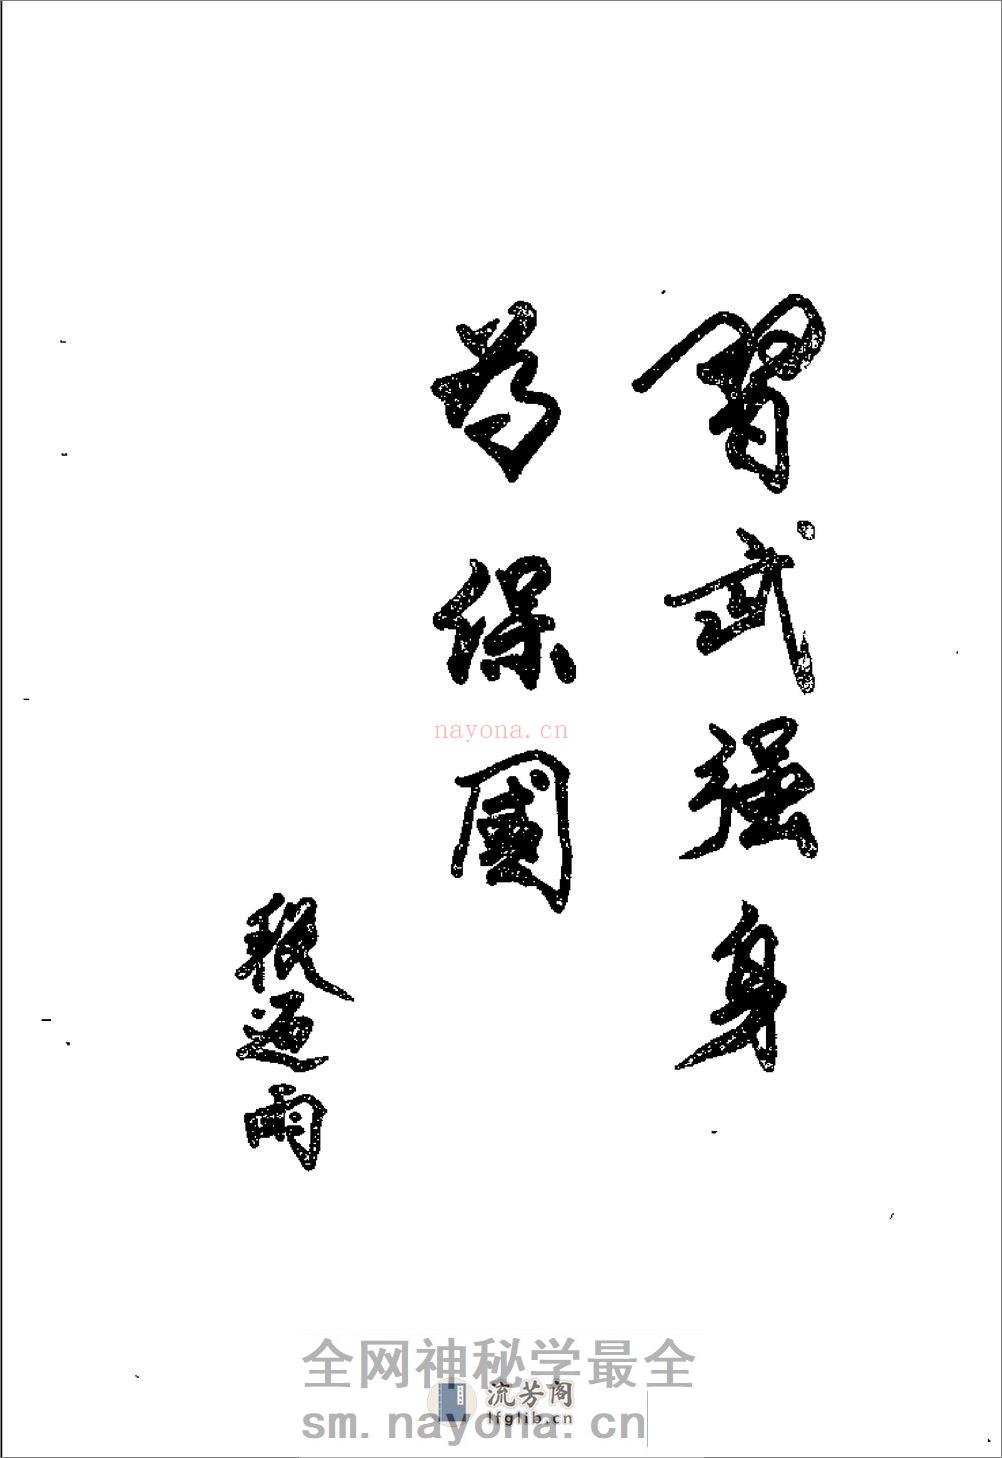 習武强身
为保國
段迺雨
nayona.cn
全网神秘学最全
流芳阁
lfglib.cn
sm.nayona.cn